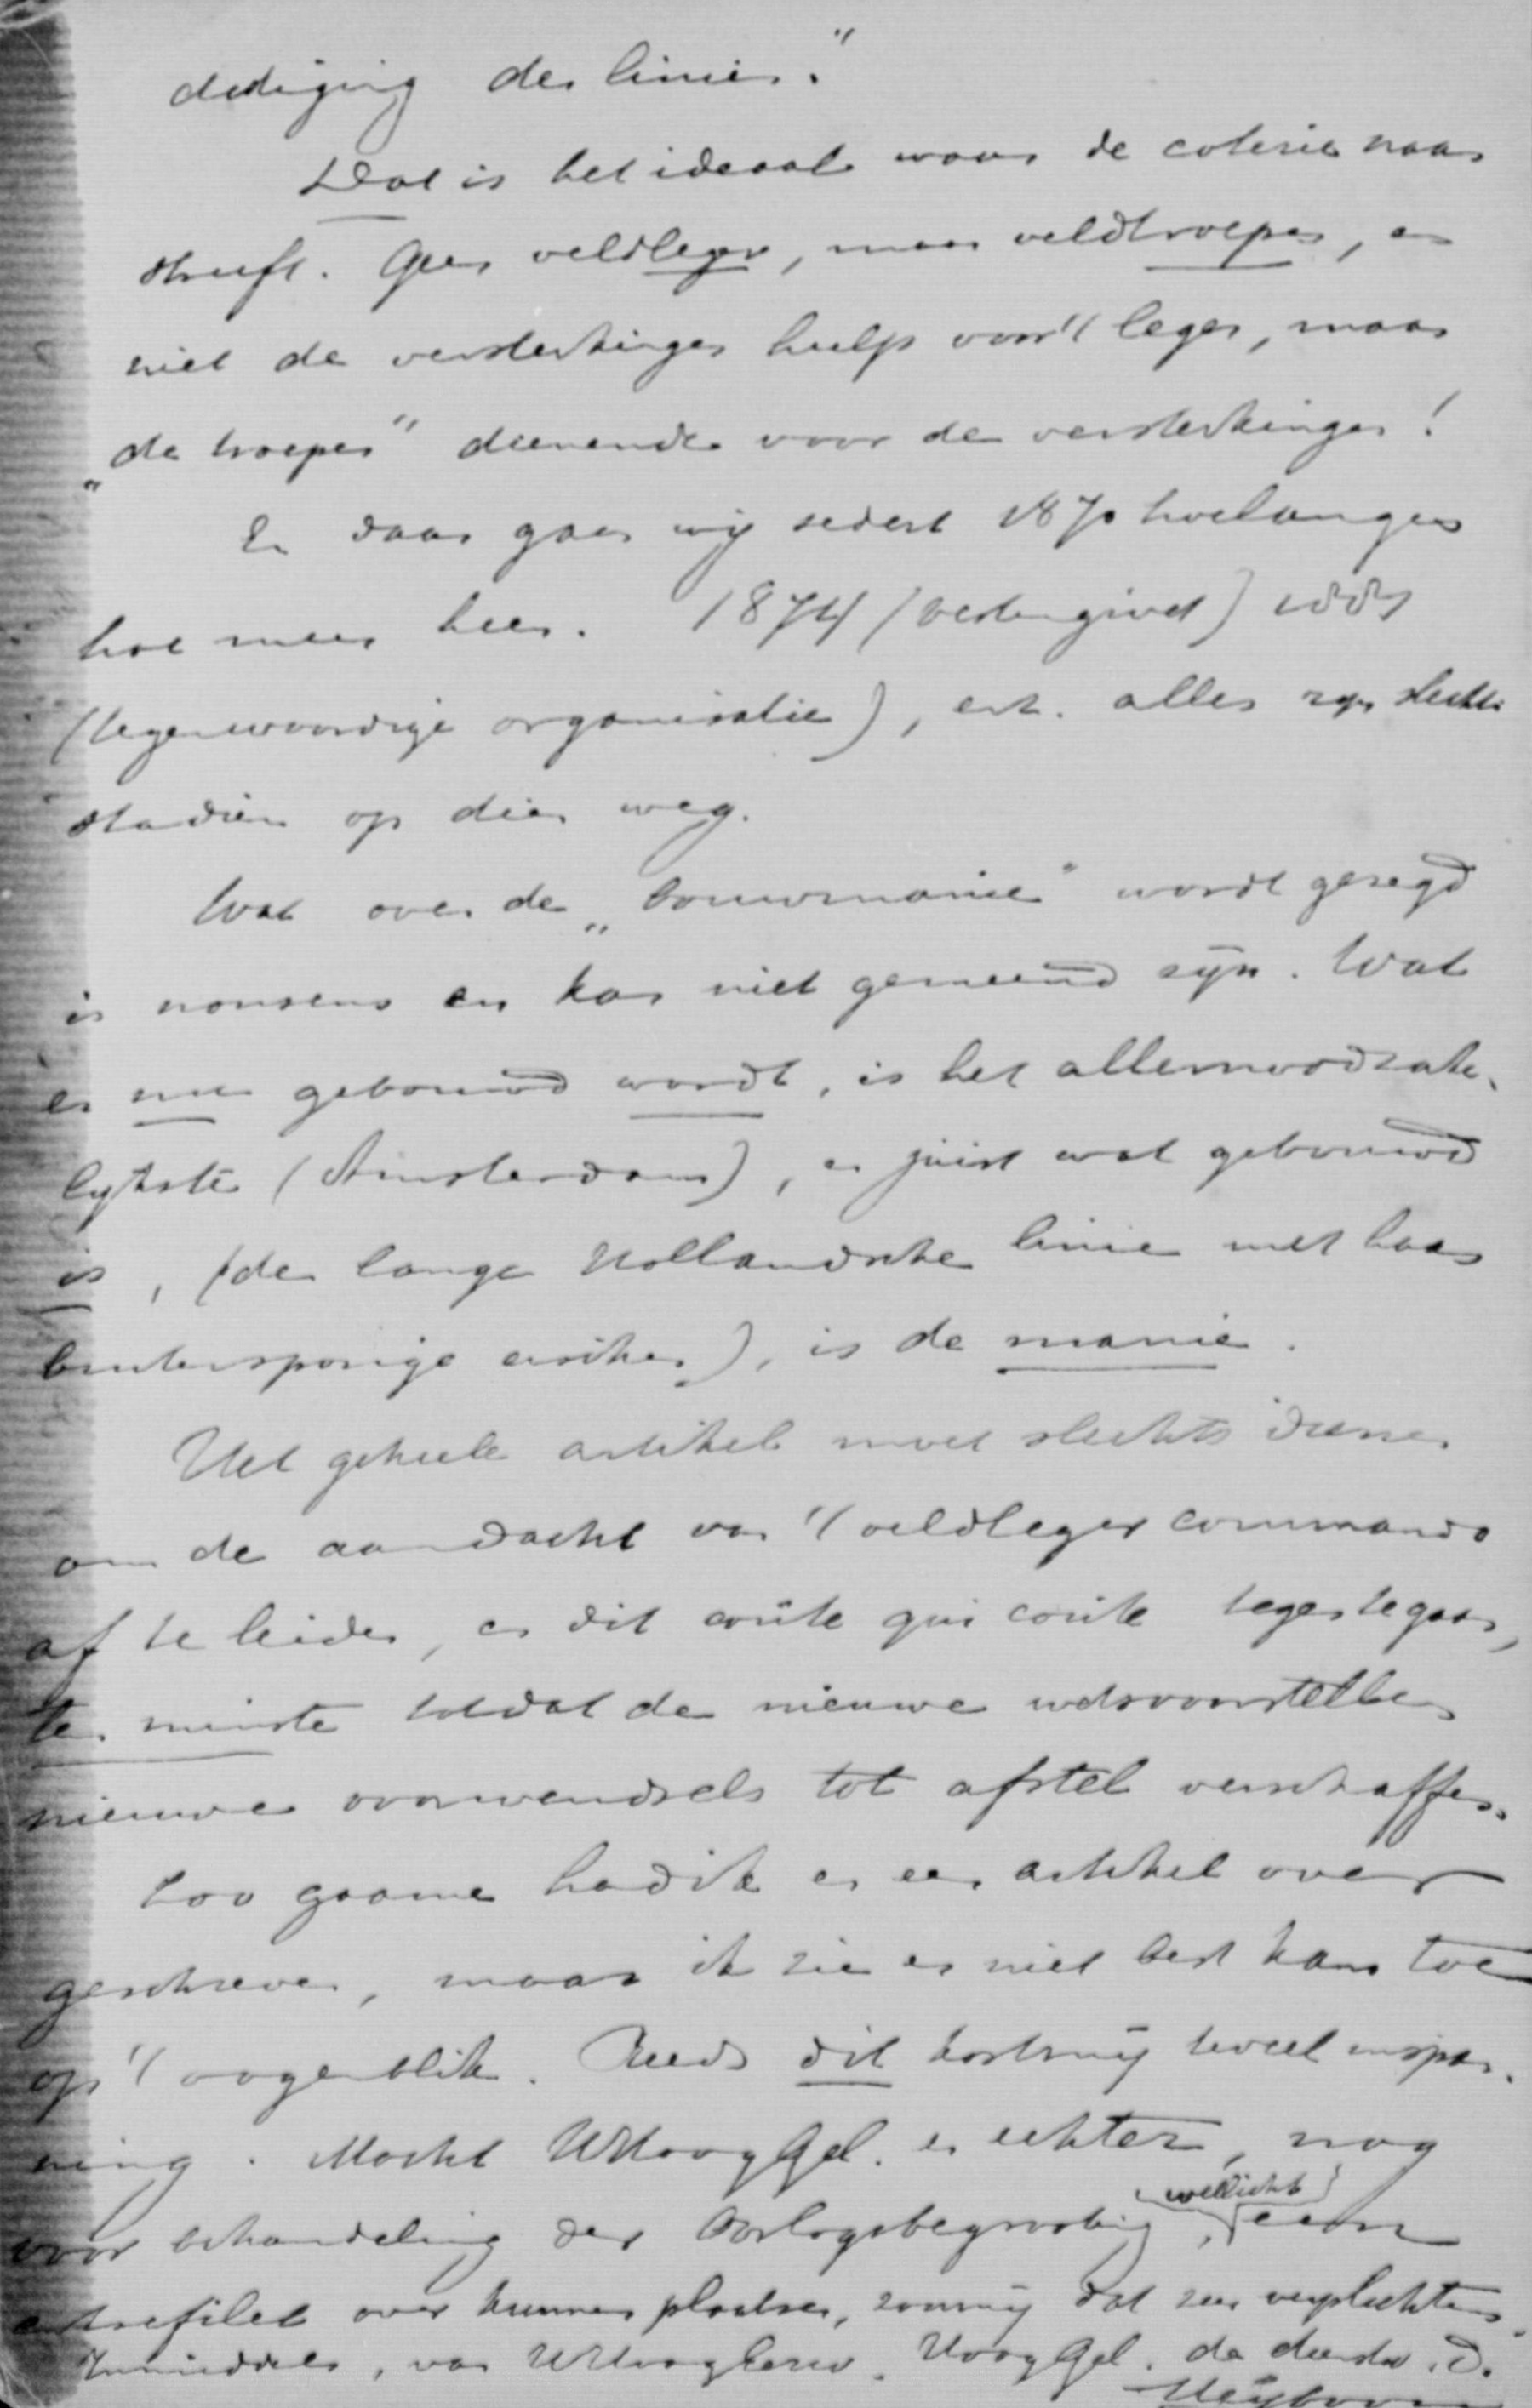 dediging der linies."
Dat is het ideaal waar de coterie naar
streeft. Geen veldleger, maar veldtroepen, en
niet de versterkingen hulp voor 't leger, maar
„de troepen" dienende voor de versterkingen!
En daar gaan wij sedert 1870 hoelanger
hoe meer heen. 1874 (vestingwet) 1881
(tegenwoordige organisatie), ect. alles zijn slechts
stadiën op dien weg.
Wat over de „bouwmanie" wordt gezegd
is nonsens en kan niet gemeend zijn. Wat
er nu gebouwd wordt, is het allernoodzake-
lykste (Amsterdam), en juist wat gebouwd
is, (de lange Hollandsche linie met haar
buitensporige eischen), is de manie.
Het geheele artikel moet slechts dienen
om de aandacht van 't veldleger commando
af te leiden, en dit coûte qui coûte tegen te gaan,
ten minste totdat de nieuwe wetsvoorstellen
nieuwe voorwendsels tot afstel verschaffen.
Zoo gaarne had ik er een artikel over
geschreven, maar ik zie er niet best kans toe
op 't oogenblik. Reeds dit kost mij teveel inspan-
ning. Mocht UHoogGel. er echter, nog
voor behandeling der Oorlogsbegrooting, wellicht een
entrefilet over kunnen plaatsen, zou mij dat zeer verplichten.
Inmiddels, van UHoogGel. de dienstw. D.